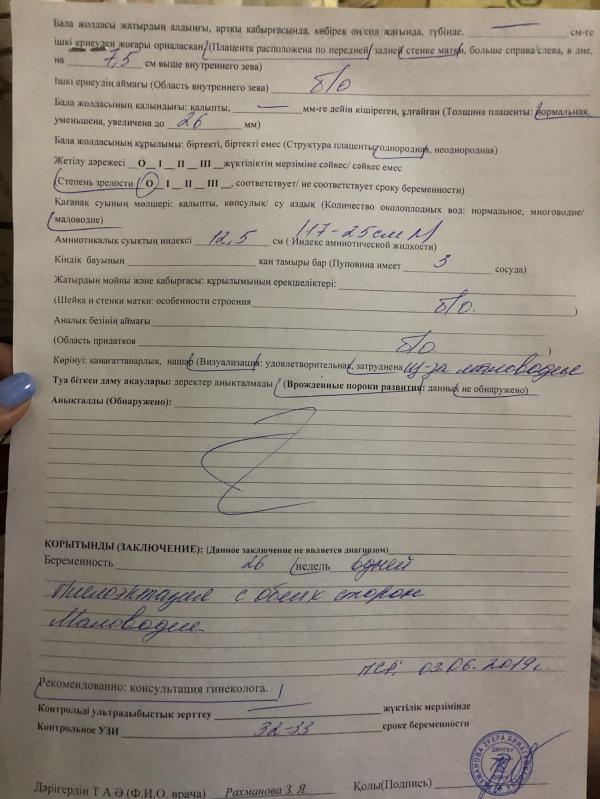 Бала жолдасы жатырдың алдыңғы, артқы қабырғасында, көбірек оң/сол жағында, түбінде, ___ см-ге
ішкі ернеуден жоғары орналасқан. (Плацента расположена по передней/ задней стенке матки, больше справа/слева, в дне,
на 7,5 см выше внутреннего зева)
Ішкі ернеудің аймағы (Область внутреннего зева) б/о
Бала жолдасының қалыңдығы: қалыпты, — мм-ге дейін кішіреген, ұлғайған (Толщина плаценты: нормальная,
уменьшена, увеличена до 26 мм)
Бала жолдасының құрылымы: біртекті, біртекті емес (Структура плаценты: однородная, неоднородная)
Жетілу дәрежесі __О__ I __ II __ III __жүктіліктің мерзіміне сәйкес/ сәйкес емес
(Степень зрелости О__ I __ II __ III __, соответствует/ не соответствует сроку беременности)
Қағанақ суының мөлшері: қалыпты, көпсулық/ су аздық (Количество околоплодных вод: нормальное, многоводие/
маловодие)
Амниотикалық суықтың индексі 12,5 см ( Индекс амниотической жидкости) 117-25 см
Кіндік бауының ___ қан тамыры бар (Пуповина имеет 3 сосуда)
Жатырдың мойны және қабырғасы: құрылымының ерекшеліктері:
(Шейка и стенки матки: особенности строения б/о. )
Аналық безінің аймағы
(Область придатков б/о )
Көрінуі: қанағаттанарлық, нашар (Визуализация: удовлетворительная, затруднена из-за маловодие
Туа біткен даму ақаулары: деректер анықталмады (Врожденные пороки развития: данных не обнаружено)
Анықталды (Обнаружено):
ҚОРЫТЫНДЫ (ЗАКЛЮЧЕНИЕ): (Данное заключение не является диагнозом)
Беременность 26 недель 6 дней
Пиелоэктазия с обеих сторон
Маловодие
ПСР: 03.06.2019г.
Рекомендованно: консультация гинеколога.
Контрольді ультрадыбыстық зерттеу — жүктілік мерзімінде
Контрольное УЗИ 32-33 сроке беременности
Дәрігердің Т А Ә (Ф.И.О. врача) Рахманова З. Я. Қолы(Подпись)